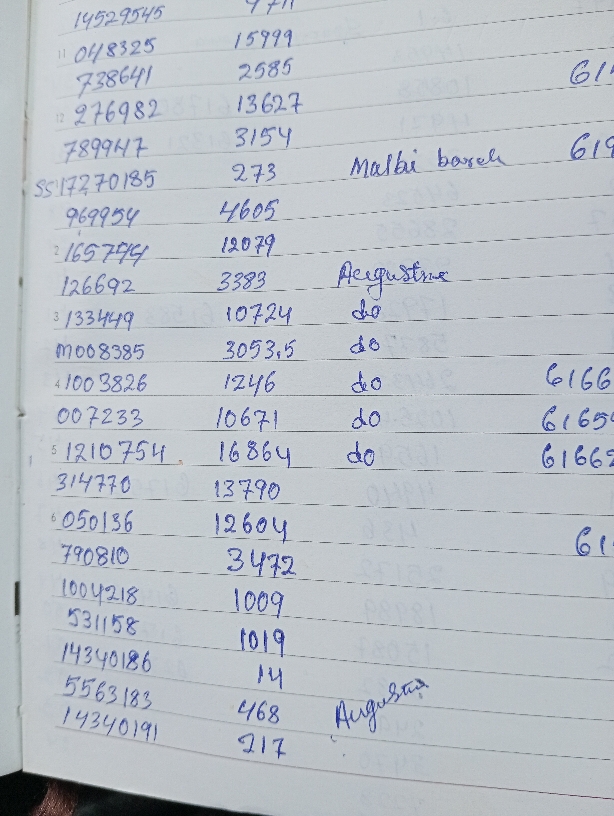 14529545
11 048325 15999
738641 2585
12 276982 13627
789947 3154
SS17270185 273 Malbi barek
969954 4605
2 165744 12079
126692 3383 Augustine
3 133449 10724 do
m008385 3053.5 do
4 1003826 1246 do 6166
007233 10671 do 6165
5 1210754 16864 do 61662
314770 13790
6 050136 12604
790810 3472
1004218 1009
531158 1019
14340186 14
5563183 468
14340191 217